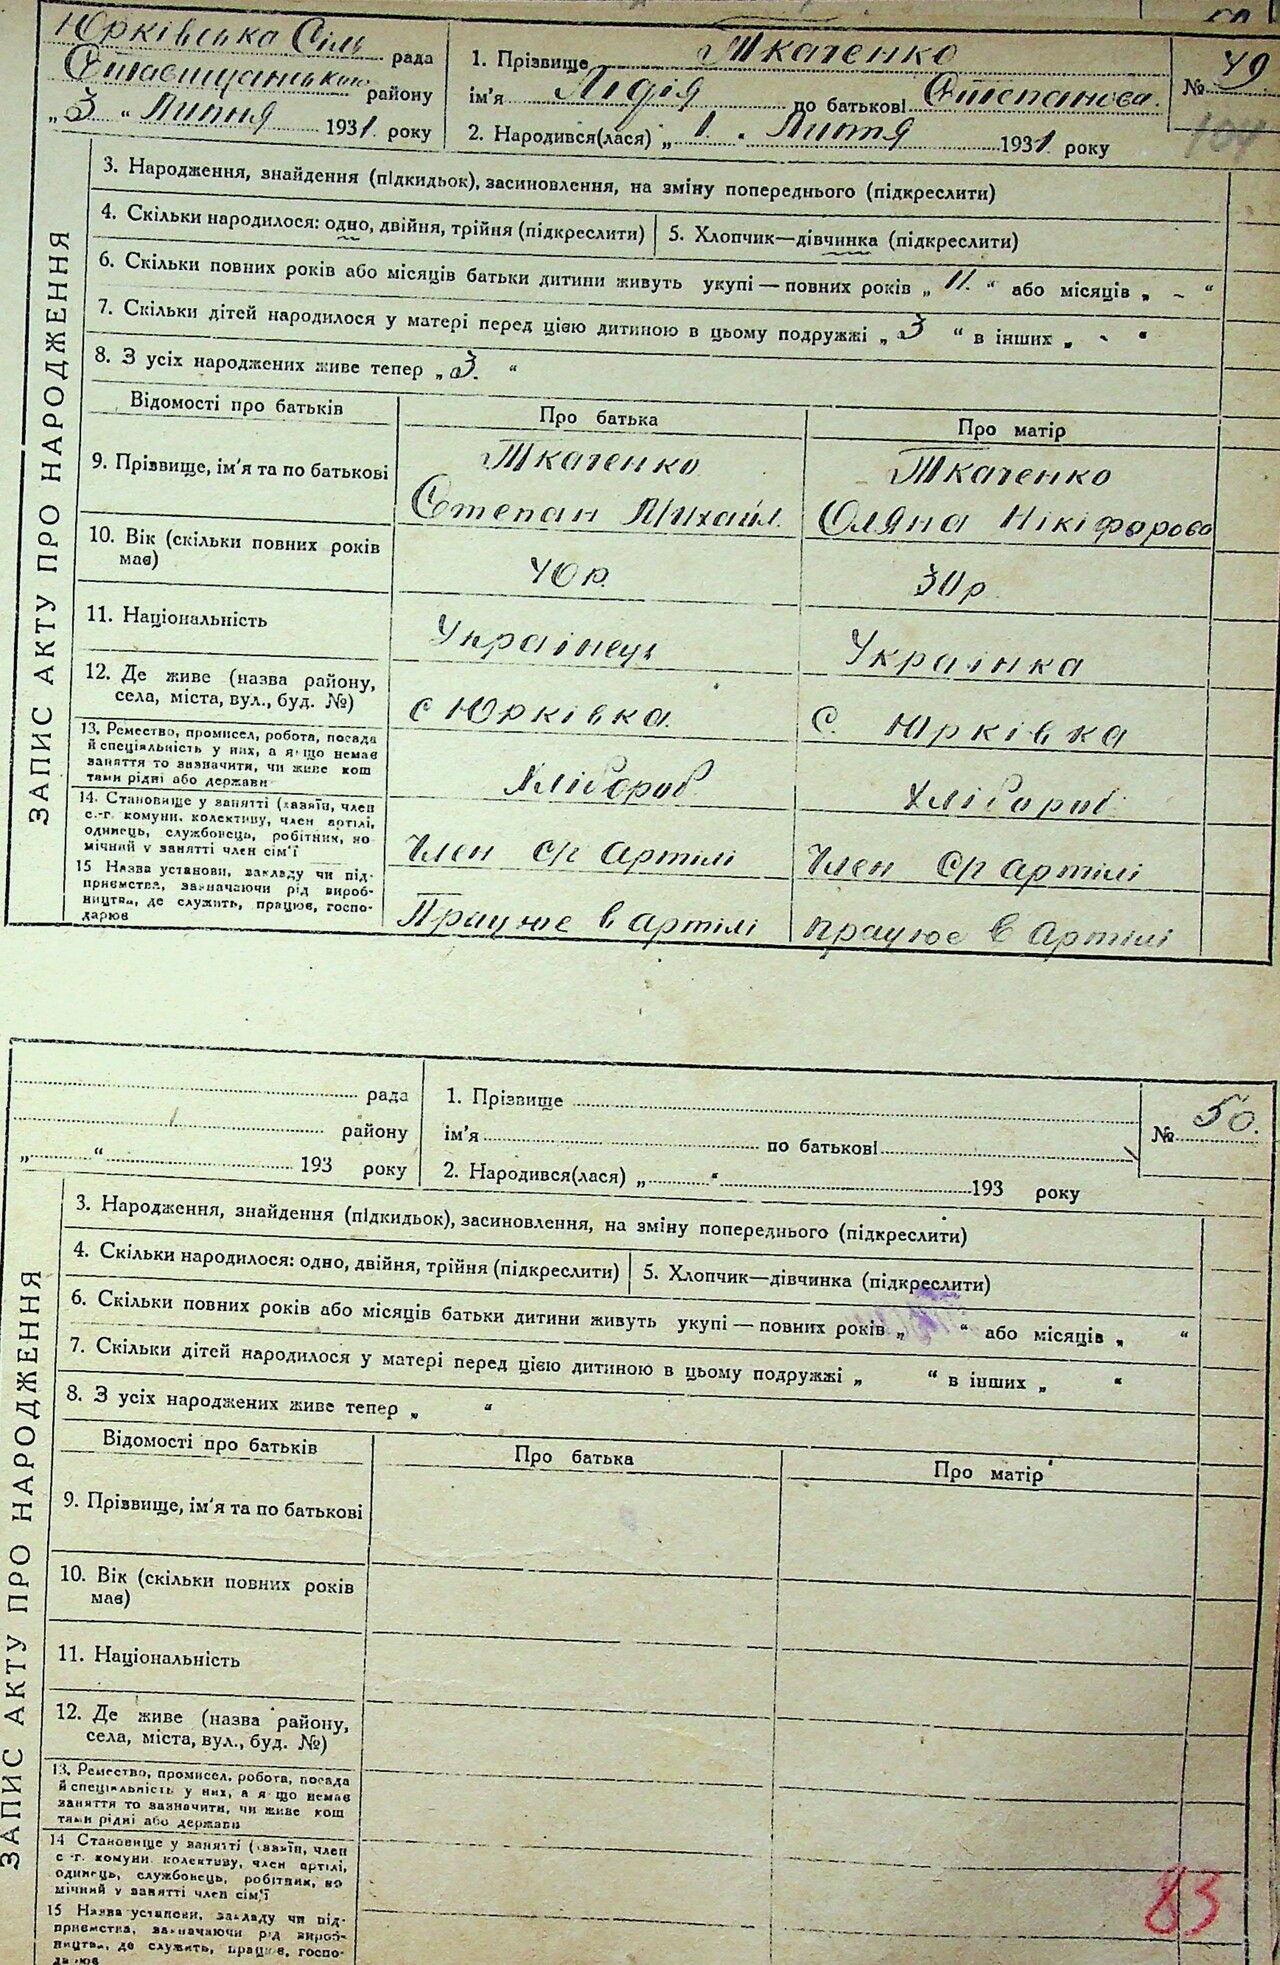 Юрківська Сіль рада
Ставищанськ району
„3“ Липня 1931 року
1. Прізвище Ткаченко
ім'я Лідія по батькові Степанова.
2. Народився(лася) „1“ Липня 1931 року
№ 49
104
ЗАПИС АКТУ ПРО НАРОДЖЕННЯ
3. Народження, знайдення (підкидьок), засиновлення, на зміну попереднього (підкреслити)
4. Скільки народилося: одно, двійня, трійня (підкреслити) 5. Хлопчик—дівчинка (підкреслити)
6. Скільки повних років або місяців батьки дитини живуть укупі — повних років „11.“ або місяців „-“
7. Скільки дітей народилося у матері перед цією дитиною в цьому подружжі „3“ в інших „-“
8. З усіх народжених живе тепер „3.“
Відомості про батьків Про батька Про матір
9. Прізвище, ім'я та по батькові
Ткаченко
Степан Михайл.
Ткаченко
Оляна Нікіфорова
10. Вік (скільки повних років
має)
40р.
30р
11. Національність
Українець
Українка
12. Де живе (назва району,
села, міста, вул., буд. №)
с Юрківка.
С. Юрківка
13. Ремество, промисел, робота, посада
й спеціяльність у них, а якщо немає
заняття то зазначити, чи живе кош
тами рідні або держави
Хлібороб
Хлібороб
14. Становище у занятті (хазяїн, член
с.-г. комуни, колективу, член артілі,
одинець, службовець, робітник, по
мічний у занятті член сім'ї
Член ср Артілі
Член ср Артілі
15 Назва установи, закладу чи під-
приємства, зазначаючи рід вироб-
ництва, де служить, працює, госпо-
дарює
Працює в Артілі
працює в Артілі
рада
району
„ “ 193 року
1. Прізвище
ім'я по батькові
2. Народився(лася) „ “ 193 року
№ 50.
ЗАПИС АКТУ ПРО НАРОДЖЕННЯ
3. Народження, знайдення (підкидьок), засиновлення, на зміну попереднього (підкреслити)
4. Скільки народилося: одно, двійня, трійня (підкреслити) 5. Хлопчик—дівчинка (підкреслити)
6. Скільки повних років або місяців батьки дитини живуть укупі — повних років „ “ або місяців „ “
7. Скільки дітей народилося у матері перед цією дитиною в цьому подружжі „ “ в інших „ “
8. З усіх народжених живе тепер „ “
Відомості про батьків Про батька Про матір
9. Прізвище, ім'я та по батькові
10. Вік (скільки повних років
має)
11. Національність
12. Де живе (назва району,
села, міста, вул., буд. №)
13. Ремество, промисел, робота, посада
й спеціяльність у них, а якщо немає
заняття то зазначити, чи живе кош
тами рідні або держави
14 Становище у занятті (хазяїн, член
с.-г. комуни колективу, член артілі,
одинець, службовець, робітник, по
мічний у занятті член сім'ї
15 Назва установи, закладу чи під-
приємства, зазначаючи рід вироб-
ництва, де служить, працює, госпо-
дарює
83